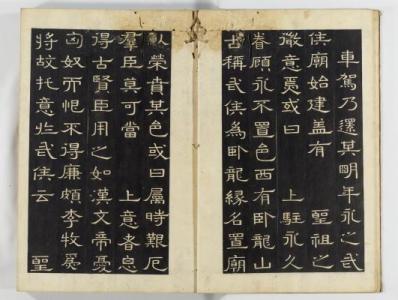 車駕乃還其明年永之武
侯廟始建蓋有　聖祖之
微意焉或曰　上駐永久
眷顧永不置邑西有卧龍山
古稱武侯為卧龍緣名置廟
以榮賁其邑或曰屬時艱厄
羣臣莫可當　上意者思
得古賢臣用之如漢文帝憂
匈奴而恨不得廉頗李牧爲
將故托意扵武侯云　聖